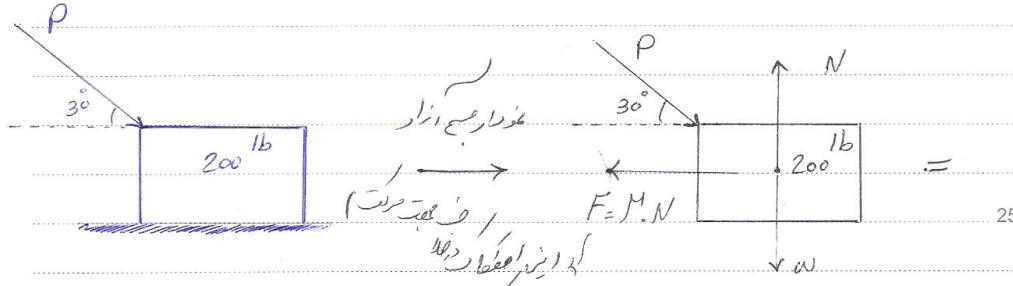 P
30°
200 lb
نمودار جسم آزاد
(خلاف جهت حرکت
P
30°
N
200 lb
F = μ.N
ω
=
25